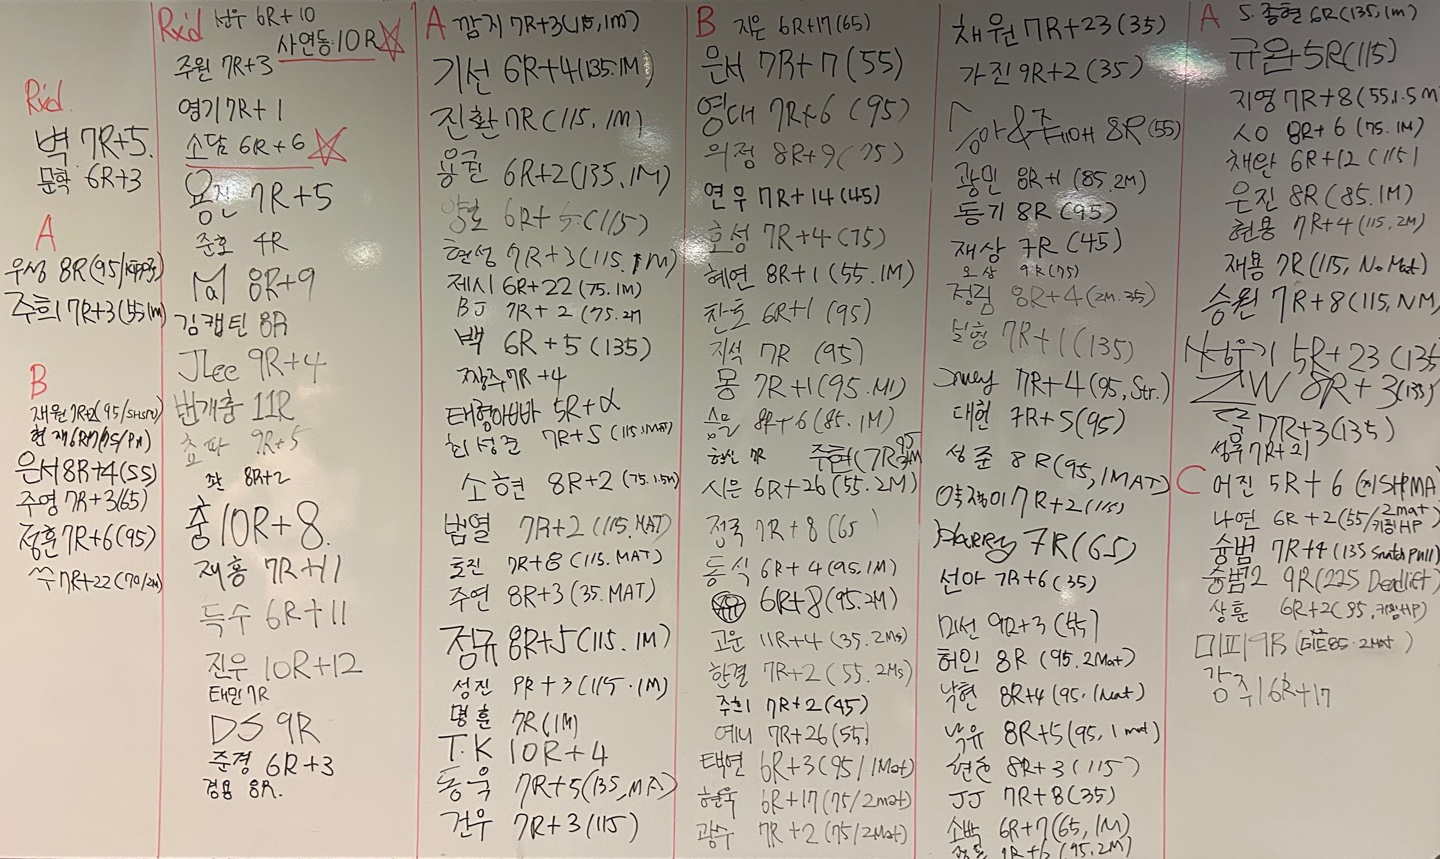 Rxd.
벽 7R+5.
문학 6R+3
A
우성 8R(95/
주희 7R+3(55.1m)
B
재원 7R+2(95/
현재 6R+7(75/
은서 8R+4(55)
주영 7R+3(65)
정훈 7R+6(95)
쑤 7R+22(70/2M)
Rx'd 선우 6R+10
사연동:10R
주원 7R+3
영기 7R+1
소담 6R+6
용진 7R+5
준호 4R
8R+9
김캡틴 8R
JLee 9R+4
번개춤 11R
초파 9R+5
8R+2
춤 10R+8.
재홍 7R+11
득수 6R+11
진우 10R+12
태민 7R
DS 9R
준경 6R+3
경용 8R.
A 깜지 7R+3(115, 1M)
기선 6R+4(135.1M)
진환 7R(115.1M)
용권 6R+2(135.1M)
양호 6R+5(115)
현성 7R+3(115.1M)
제시 6R+22(75.1M)
BJ 7R+2(75.2M
백 6R+5(135)
짱주 7R+4
태형아빠 5R+α
최성준 7R+5(115.1MAT)
소현 8R+2(75.1.5M)
범열 7R+2(115.MAT)
효진 7R+8(115.MAT)
주연 8R+3(35.MAT)
정규 8R+5(115.1M)
성진 8R+3(115.1M)
명훈 7R(1M)
T.K 10R+4
동욱 7R+5(135,MA)
건우 7R+3(115)
B 지은 6R+17(65)
은서 7R+7(55)
영대 7R+6(95)
의정 8R+9(75)
연우 7R+14(45)
효성 7R+4(75)
혜연 8R+1(55.1M)
찬호 6R+1(95)
지석 7R (95)
몽 7R+1(95.M1)
8R+6(85.1M)
7R 주현(7R
시은 6R+26(55.2M)
정국 7R+8(65)
동식 6R+4(95.1M)
6R+8(95.2M)
고운 11R+4(35.2Ms)
한결 7R+2(55.2Ms)
주희 7R+2(45)
예니 7R+26(55)
택연 6R+3(95/1Mat)
현욱 6R+17(75/2mat)
광수 7R+2(75/2Mat)
채원 7R+23(35)
가진 9R+2(35)
8R(55)
광민 8R+1(85.2M)
동기 8R(95)
재상 7R(45)
9R(75)
정림 8R+4(2M.35)
보형 7R+1(135)
7R+4(95, Str.)
대현 7R+5(95)
성준 8R(95,1MAT)
약쟁이 7R+2(115)
Harry 7R(65)
선아 7R+6(35)
미선 9R+3(45)
허인 8R(95.2Mat)
낙현 8R+4(95.1Mat)
낙유 8R+5(95, 1mat)
현준 8R+3(115)
JJ 7R+8(35)
소박 6R+7(65,1M)
(95.2M)
A S.종현 6R(135,1m)
규온 +5R(115)
지영 7R+8(55,1.5M
8R+6(75.1M)
채완 6R+12(115)
우진 8R(85.1M)
현용 7R+4(115,2M)
재용 7R(115, No Mat)
승원 7R+8(115,NM)
5R+23(135
ZW 8R+3(135)
7R+3(135)
성우 7R+21
C 어진 5R+6
나연 6R+2(55/2mat/키핑HP
슝범 7R+4(135 Snatch Pull)
슝범2 9R(225 Deadlift)
상훈 6R+2(95,키핑HP)
미피 9R(
강주 6R+17